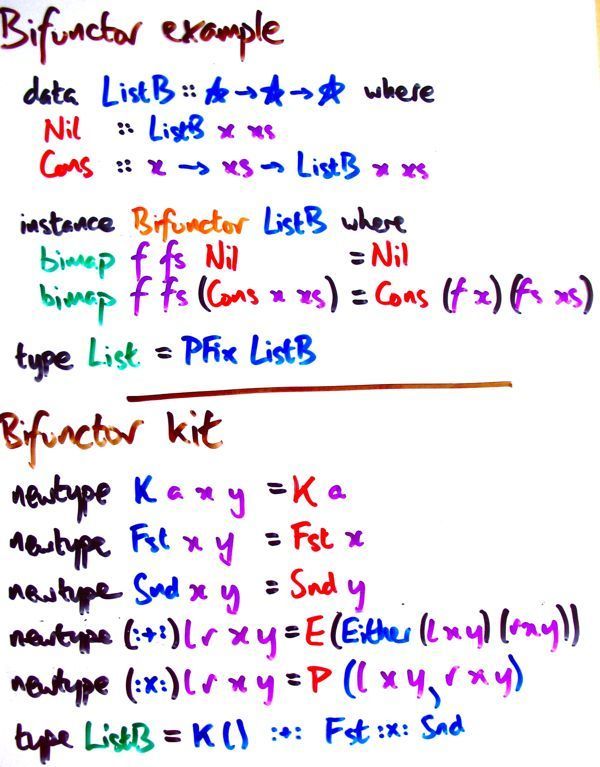 Bifunctor example
data ListB :: ☆ → ☆ → ☆ where
Nil :: ListB x xs
Cons :: x → xs → ListB x xs
instance Bifunctor ListB where
bimap f fs Nil = Nil
bimap f fs (Cons x xs) = Cons (f x) (fs xs)
type List = PFix ListB
Bifunctor kit
newtype K a x y = K a
newtype Fst x y = Fst x
newtype Snd x y = Snd y
newtype (:+:) l r x y = E (Either (l x y) (r x y))
newtype (:x:) l r x y = P (l x y, r x y)
type ListB = K () :+: Fst :x: Snd